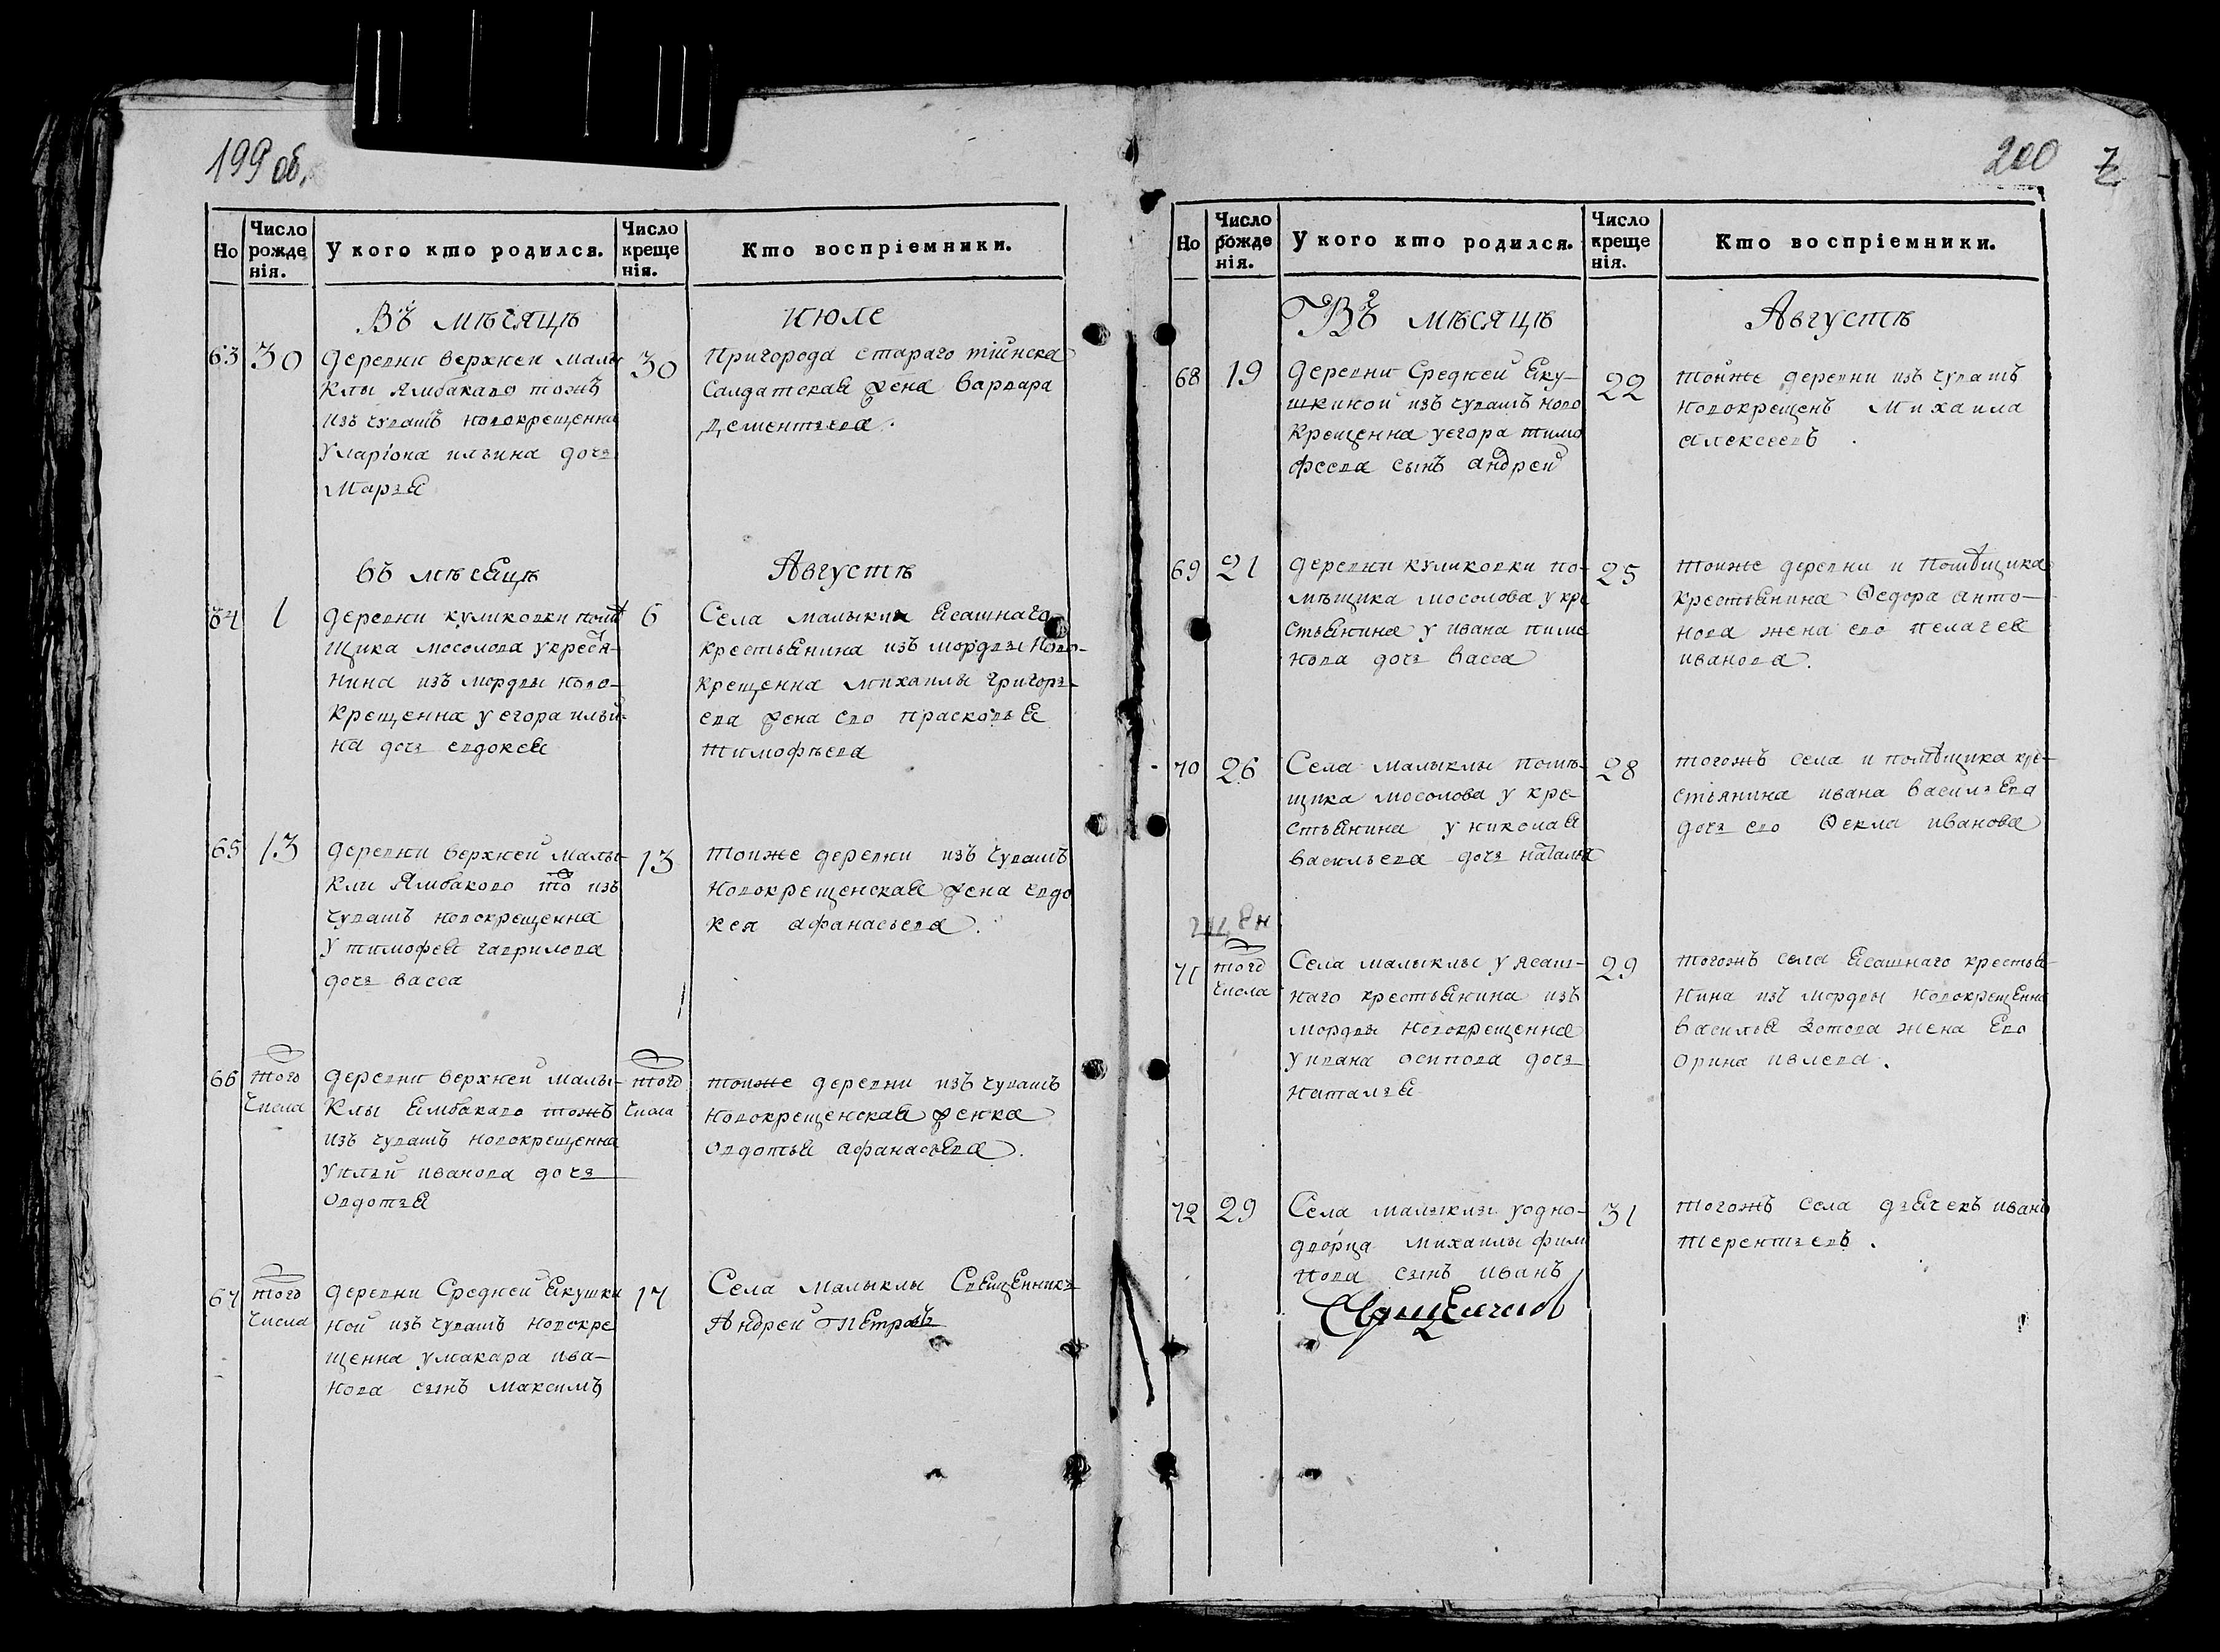 199 об.
Но
Число рожденія.
У кого кто родился.
Число крещенія.
Кто воспріемники.
Въ мѣсяцѣ
июле
63
30
деревни верхнеи малы
клы Ямбаково тожъ
изъ чувашъ новокрещенна
у ларіона ильина дочь
Марья
30
Пригорода стараго тіинска
салдатская жена варвара
дементьева.
въ мѣсецѣ
Августѣ
64
1
деревни куликовки помѣ
щика мосолова у кресья-
нина изъ мордвы ново-
крещенна у егора ильи-
на дочь евдокея
6
Села малыкли ясашнаго
крестьянина изъ мордвы ново-
крещенна михаилы григорь-
ева жена ево прасковья
тимофѣева
65
13
деревни верхней малы-
кли Ямбаково то изъ
чувашъ новокрещенна
у тимофея гаврилова
дочь васса
13
тоиже деревни изъ чувашъ
новокрещенская жена евдо
кея афанасьева.
66
того
числа
деревни верхней малы-
клы ямбаково тожъ
изъ чувашъ новокрещенна
у ильи иванова дочь
овдотья
того
числа
тоиже деревни изъ чувашъ
новокрещенская женка
овдотья афанасьева.
67
того
числа
деревни Средней якушки
ной изъ чувашъ новокре
щенна у макара ива-
нова сынъ максимъ
17
Села малыклы Священникъ
Андреи Петровъ
200
Но
Число рожденія.
У кого кто родился.
Число крещенія.
Кто воспріемники.
Въ мѣсяцѣ
Августѣ
68
19
деревни Средней яку-
шкиной изъ чувашъ ново
крещенна у егора тимо
феева сынъ андреи
22
тойже деревни изъ чувашъ
новокрещенъ михаила
алексеевъ.
69
21
деревни куликовки по-
мѣщика мосолова у кре
стьянина у ивана пиме
нова дочь васса
25
тоиже деревни и помѣщика
крестьянина Ѳедора анто-
нова жена ево пелагея
иванова.
70
26
Села малыклы помѣ-
щика мосолова у кре-
стьянина у николая
васильева дочь наталья
28
тогожъ села и помѣщика кре-
стьянина ивана васильева
дочь ево Ѳекла иванова
71
того
числа
Села малыклы у ясаш-
наго крестьянина изъ
мордвы новокрещенна
у ивана осипова дочь
наталья
29
тогожъ села ясашнаго крестья-
нина изъ мордвы новокрещенна
василья зотова жена ево
орина ивлева.
72
29
Села малыклы у одно-
дворца михаилы фили
пова сынъ иванъ
31
тогожъ села дьячекъ иванъ
терентьевъ.